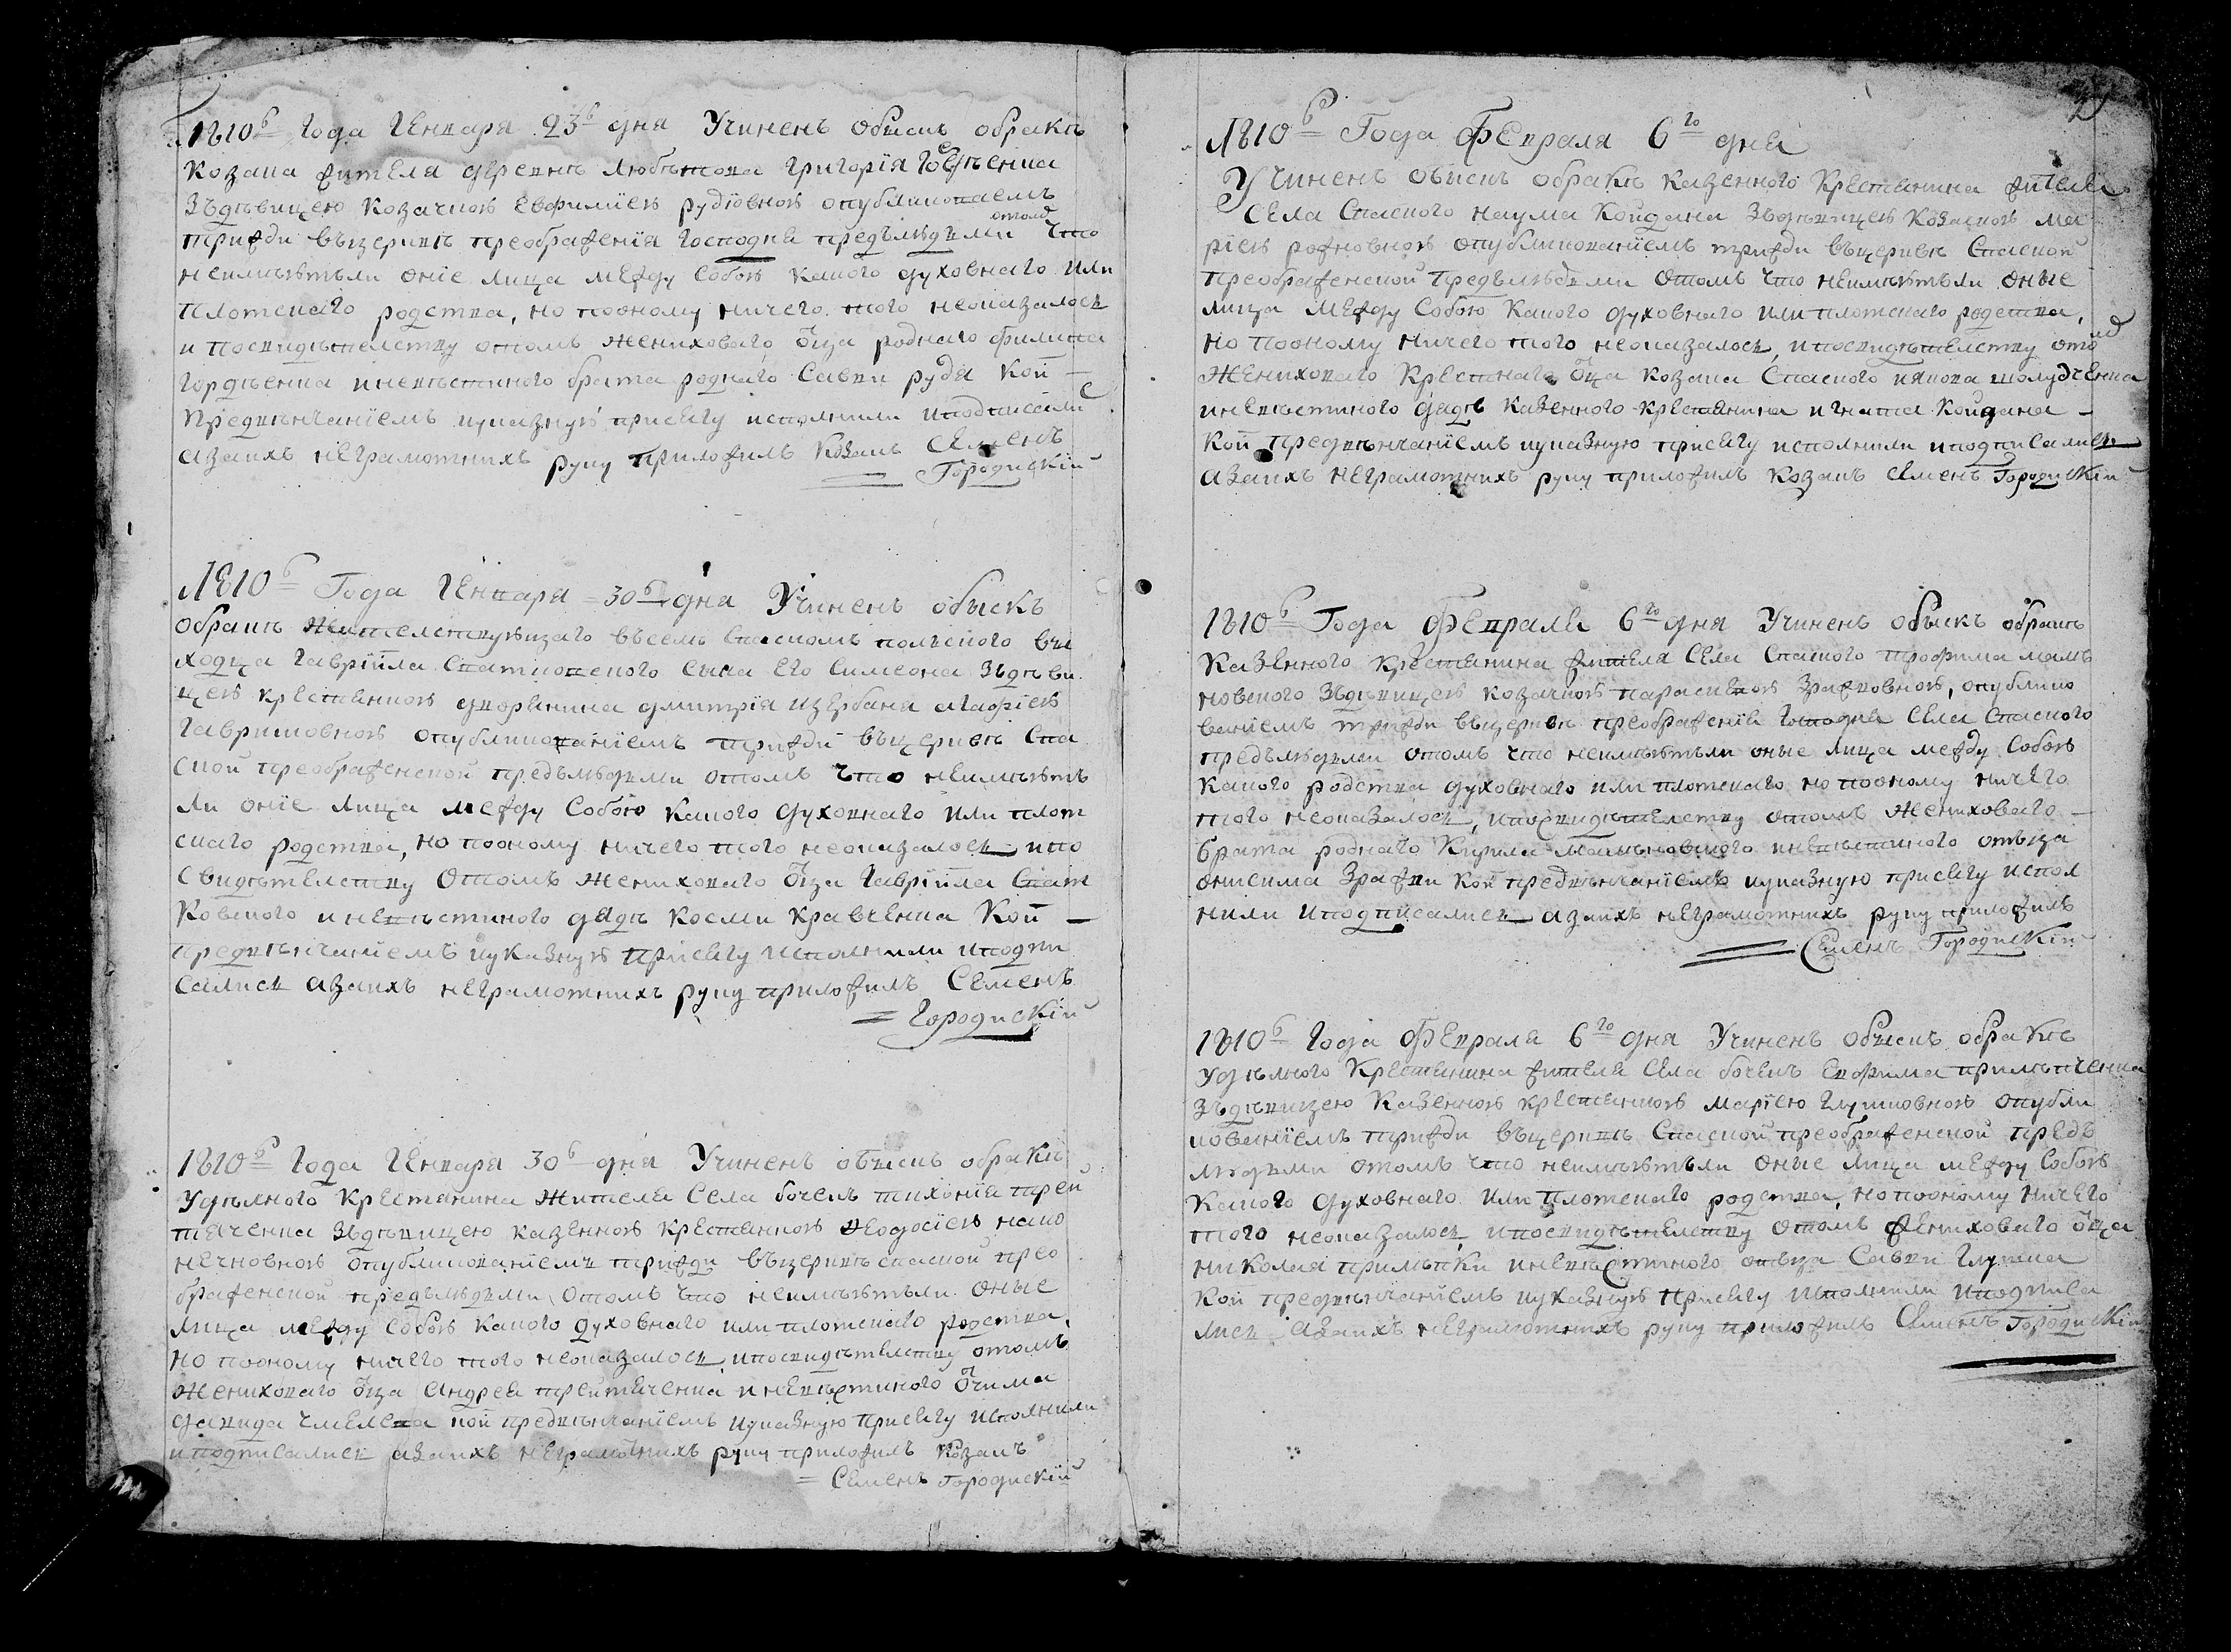 1810ь Года Генваря 23ь дня Учиненъ обыскъ обракѣ
козака жителя деревнѣ Любытова Григорія Гордѣенка
Зъдѣвицею козачкою Евфиміею рудіовною опубликованіемъ
трижди въцерквѣ преображенія Господня предълюдьми отомъ что
неимѣютъли оніе лица между собою какого духовнаго или
плотскаго родства, но пооному ничего того неоказалось
и посвидѣтелству отомъ жениховаго отца роднаго филипа
гордѣенка иневѣстиного брата роднаго Савки руди кои
предвѣнчаніемъ иуказную присягу исполнили иподписались
азаихъ неграмотнихъ руку приложилъ Козакъ Семенъ
Городискій
1810ь Года Генваря 30ь дня Учиненъ обыскъ
обракѣ жителствующаго въселѣ Спаскомъ полского вы
ходца Гавріила Спатковского сына его Симеона Зъдѣви
цею крестянкою дворянина дмитрія щербака агафіею
Гавришовною опубликованіемъ трижди въцерквѣ Спа
ской преображенской предълюдьми отомъ что неимѣютъ
ли оніе лица между собою какого духовнаго или плот
скаго родства, но пооному ничего того неоказалось ипо
свидѣтелству отомъ жениховаго отца Гавріила Спат
ковского иневѣстиного дядѣ косми кравченка кои
предвѣнчаніемъ иуказную присягу исполнили иподпи
сались азаихъ неграмотнихъ руку приложилъ Семенъ
Городискій
1810ь Года Генваря 30ь дня Учиненъ обыскъ обракѣ
Удѣлного крестянина жителя Села бочекъ тихонія трей
тяченка Зъдѣвицею казенною крестянкою феодосіею нако
нечновною опубликованіемъ трижди въцерквѣ спаской прео
браженской предълюдьми отомъ что неимѣютъли оные
лица между собою какого духовнаго или плотскаго родства,
но пооному ничего того неоказалось ипосвидѣтелству отомъ
жениховаго отца Андрея трейтяченка иневѣстиного отчима
давида чмелека кои предвѣнчаніемъ иуказную присягу исполнили
иподписались азаихъ неграмотнихъ руку приложилъ козакъ
Семенъ Городискій
1810ь Года Февраля 6го дня
Учиненъ обыскъ обракѣ казенного крестянина жителя
Села Спаского наума Койдана Зъдѣвицею козачкою ма
ріею рожновною опубликованіемъ трижди въцерквѣ Спаской
преображенской предълюдьми отомъ что неимѣютъли оные
лица между собою какого духовнаго или плотскаго родства,
но пооному ничего того неоказалось, ипосвидѣтелству отомъ
жениховаго крестнаго отца козака Спаского якова шолудченка
иневѣстиного дядѣ казенного крестянина игната Койдана
кои предвѣнчаніемъ иуказную присягу исполнили иподписались
азаихъ неграмотнихъ руку приложилъ козакъ Семенъ Городискій
1810ь Года Февраля 6го дня Учиненъ обыскъ обракѣ
казенного крестянина жителя Села Спаского трофима мамъ
новского Зъдѣвицею козачкою параскевою Зражковною, опублико
ваніемъ трижди въцерквѣ преображенія Господня Села Спаского
предълюдьми отомъ что неимѣютъли оные лица между собою
какого родства духовнаго или плотскаго но пооному ничего
того неоказалось, ипосвидѣтелству отомъ жениховаго
брата роднаго Кирила Мамъновского иневѣстиного отъца
онисима Зражки кои предвѣнчаніемъ иуказную присягу испол
нили иподписались азаихъ неграмотнихъ руку приложилъ
Семенъ Городискій
1810ь Года Февраля 6го дня Учиненъ обыскъ обракѣ
удѣлного крестянина жителя Села бочекъ Евфима примъченка
зъдѣвицею казенною крестянкою Маріею Глушковною опубли
кованіемъ трижди въцерквѣ Спаской преображенской предъ
людьми отомъ что неимѣютъли оные лица между собою
какого духовнаго или плотскаго родства, но пооному ничего
того неоказалось, ипосвидѣтелству отомъ жениховаго отца
николая примъпки иневѣстиного отъца Савки Глушка
кои предвѣнчаніемъ иуказную присягу исполнили иподписа
лись азаихъ неграмотнихъ руку приложилъ Семенъ Городискій